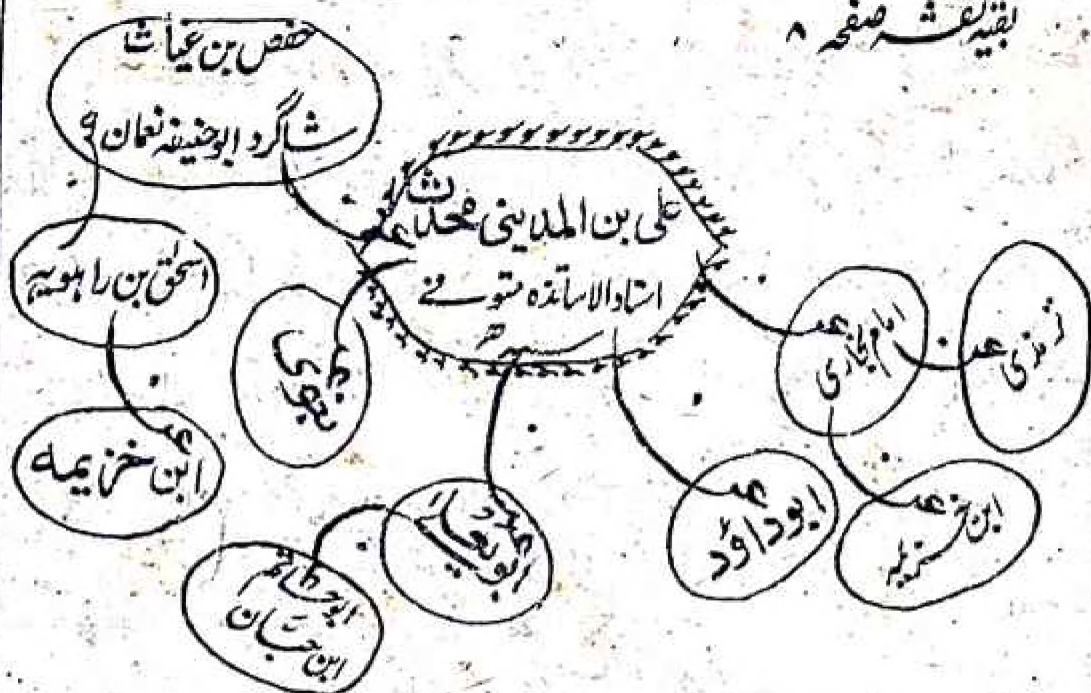 بقیہ نقشہ صفحہ ۸
حفص بن غیاث
شاگرد ابوحنیفہ نعمان
علی بن المدینی محدث
استاد الاساتذہ متوفے
اسحٰق بن راہویہ
ابن خزیمہ
بغوی
ابویعلے
ابوحاتم
ابن حبان
ابوداؤد
امام بخاری
ابن خزیمہ
ترمذی